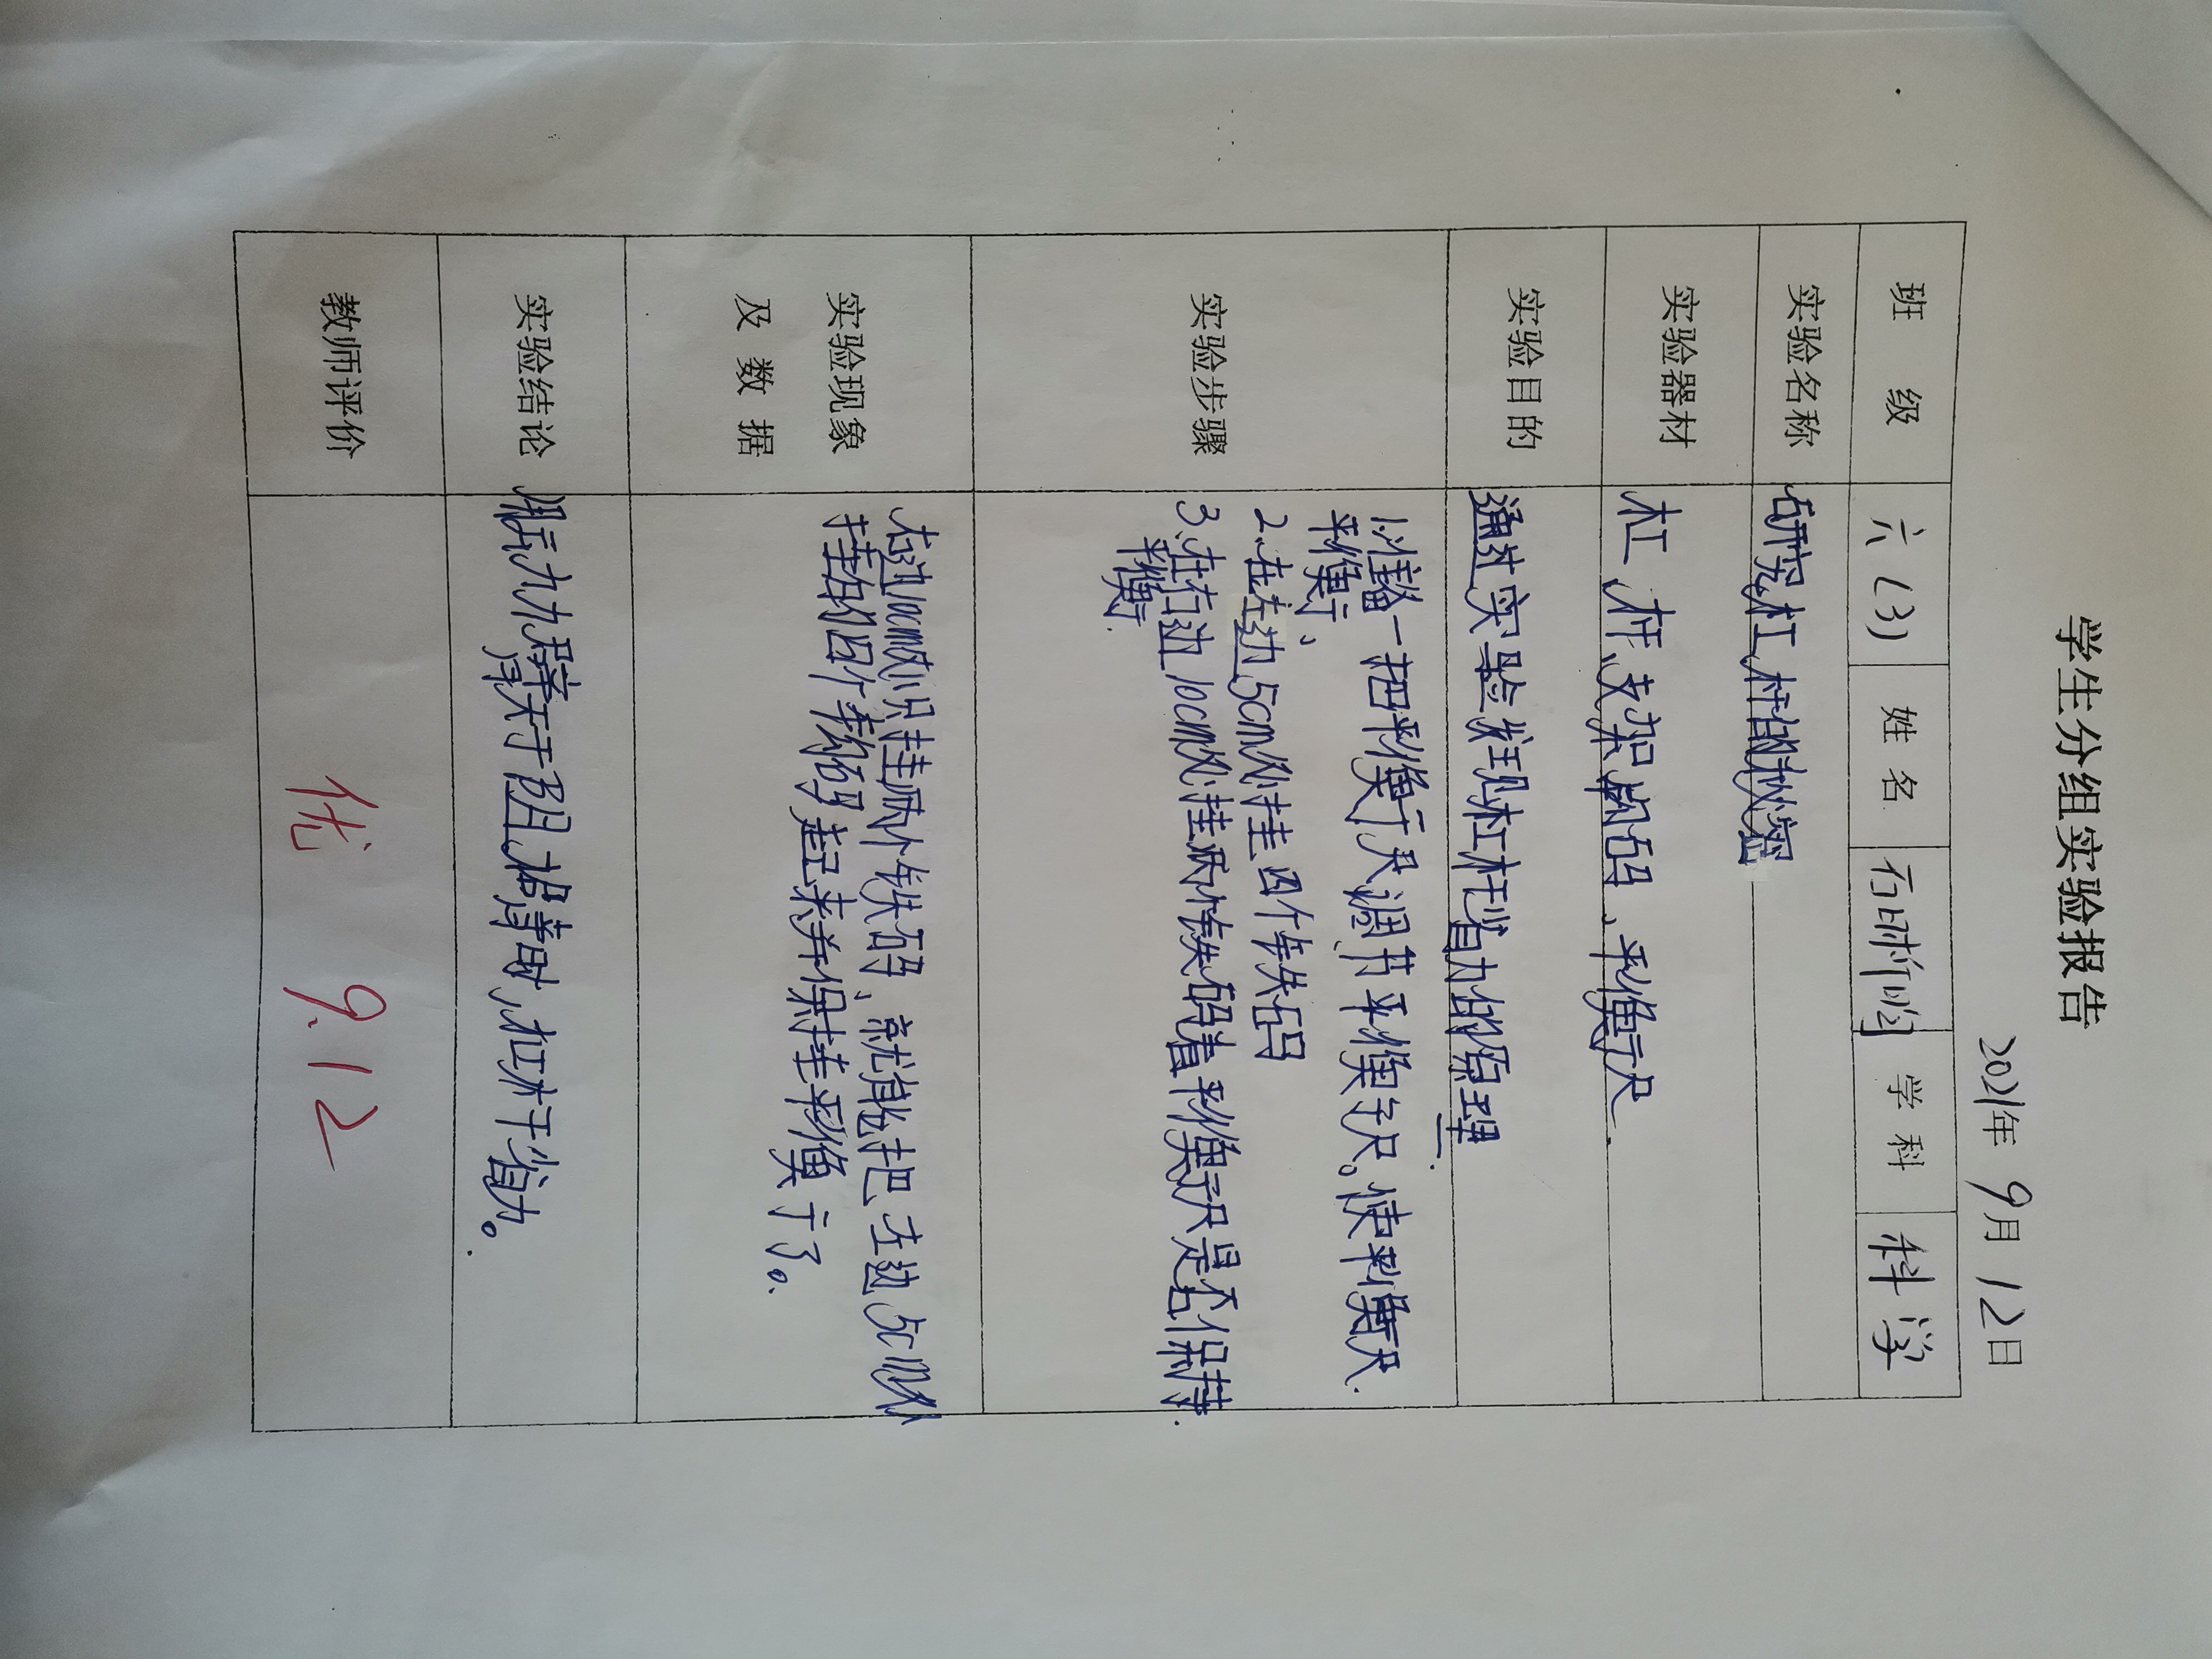 学生分组实验报告
2021年 9月 12日
班 级 六(3) 姓 名 石 学 科 科学
实验名称 研究杠杆的秘密
实验器材 杠杆、支架、钩码、平衡尺
实验目的 通过实验发现杠杆省力的原理
实验步骤
1.准备一把平衡尺调节平衡尺。使平衡尺
平衡、
2.在左边5cm处挂四个铁码
3.在右边10cm处挂两个铁码看平衡尺是否保持
平衡.
实验现象
及 数 据
右边10cm处只挂两个铁码、就能把左边5cm处
挂的四个铁码起来并保持平衡了。
实验结论 用力力臂大于阻力臂时,杠杆省力。
教师评价 优 9.12